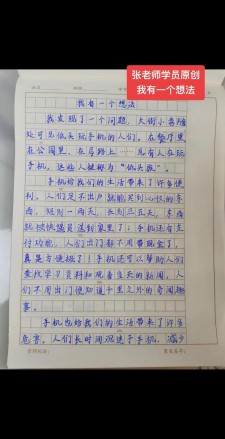 张老师学员原创
我有一个想法
我有一个想法
我发现了一个问题,大街小巷随
处可见低头玩手机的人们。在餐厅里
在公园里、在马路上……总有人在玩
手机,这些人被称为“低头族”。
手机给我们的生活带来了许多便
利。人们足不出户就能买到心怡的东
西,短则一两天,长则三五天,东西
就被快递员送到家里了!手机还有支
付功能,人们出门都不用带现金了,
真是方便极了!手机还可以帮助人们
查找学习资料和观看当天的新闻,人
们不用出门便知道千里之外的奇闻趣
事。
手机也给我们的生活带来了许多
危害。人们长时间沉迷于手机,减少